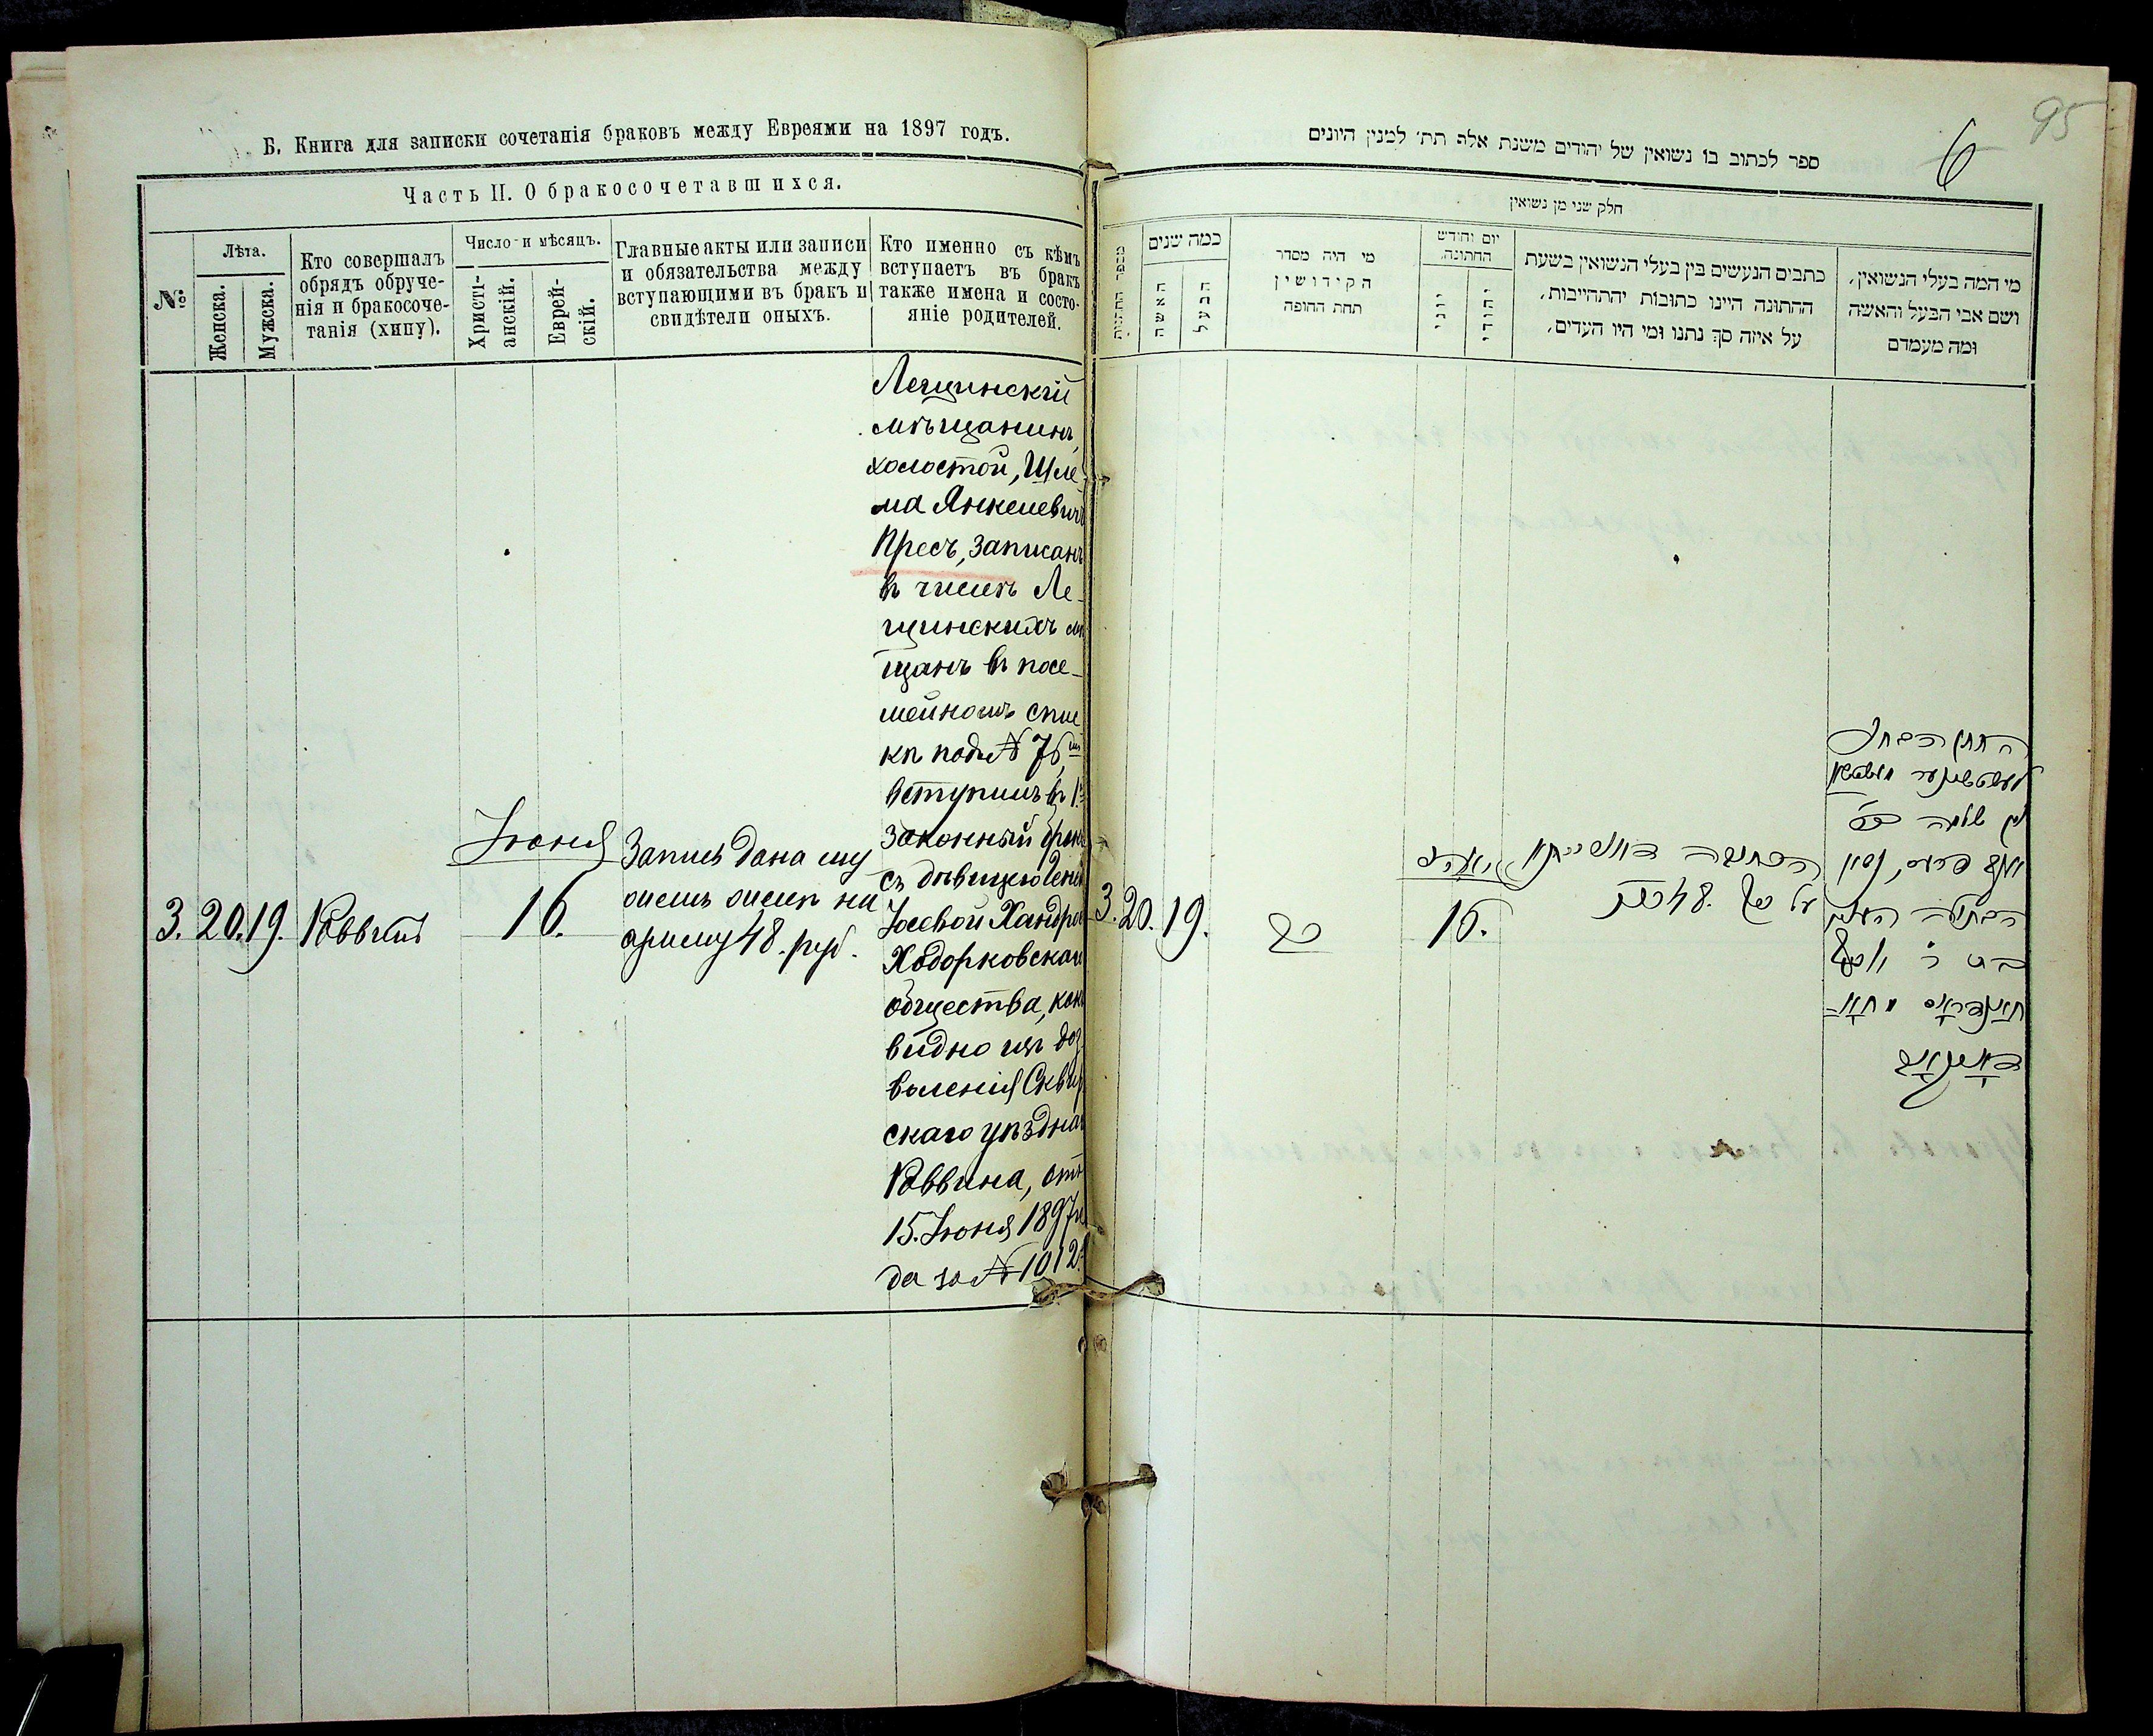 Б. Книга для записки сочетанія браковъ между Евреями на 1897 годъ.
Часть II. О бракосочетавшихся.
№
Лѣта.
Женска.
Мужска.
Кто совершалъ
обрядъ обруче-
нія и бракосоче-
танія (хипу).
Число и мѣсяцъ.
Христі-
анскій.
Еврей-
скій.
Главные акты или записи
и обязательства между
вступающими въ бракъ и
свидѣтели оныхъ.
Кто именно съ кѣмъ
вступаетъ въ бракъ
также имена и состо-
яніе родителей.
3. 20. 19. Раввинъ
Іюня
16.
Запись дана
48. руб.
Лещинскій
мѣщанинъ,
холостой, Шле-
ма Янкелевичъ
Пресъ, записанъ
въ числѣ Ле-
щинскихъ мѣ
щанъ въ посе-
мейномъ спис
кѣ подъ № 76,
вступилъ въ 1й
законный бракъ
съ дѣвицею
Іосевой
Ходорковскаго
общества, какъ
видно изъ доз
воленія Сквир
скаго уѣзднаго
Раввина, отъ
15. Іюня 1897 го
да за № 1012.
95
6
ספר לכתוב בו נשואין של יהודים משנת אלף תת׳ למנין היונים
חלק שני מן נשואין
מספר החתונות
כמה שנים
האשה
הבעל
מי היה מסדר
הקידושין
תחת החופה
יום וחודש
החתונה
יוני
יהודי
כתבים הנעשים בין בעלי הנשואין בשעת
ההתונה היינו כתובות יהתהייבות,
על איזה סך נתנו ומי היו העדים,
מי המה בעלי הנשואין,
ושם אבי הבעל והאשה
ומה מעמדם
3. 20. 19.
רב
16.
על סך 48. רוב
שלמה
הבתולה